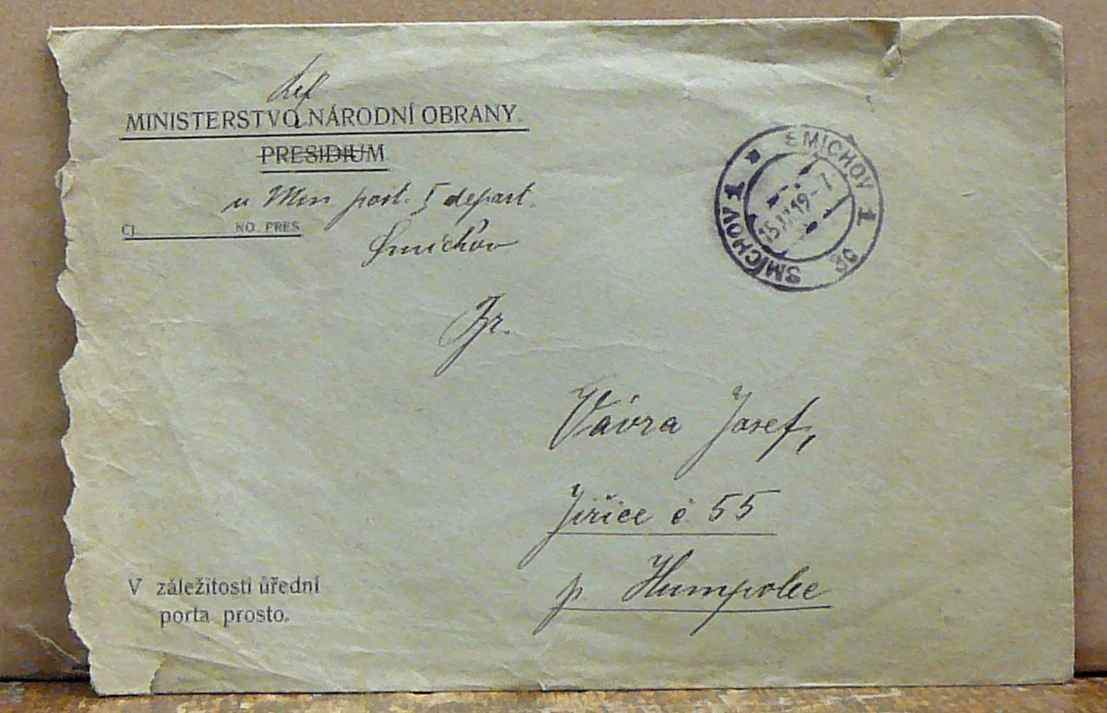 MINISTERSTVO NÁRODNÍ OBRANY.
PRESIDIUM
u Min post. I depart.
Čj. NO. PRES.
Smíchov
SMICHOV 1
SMÍCHOV 1
Vávra Josef,
Jiřice č 55
p Humpolec
V záležitosti úřední
porta prosto.